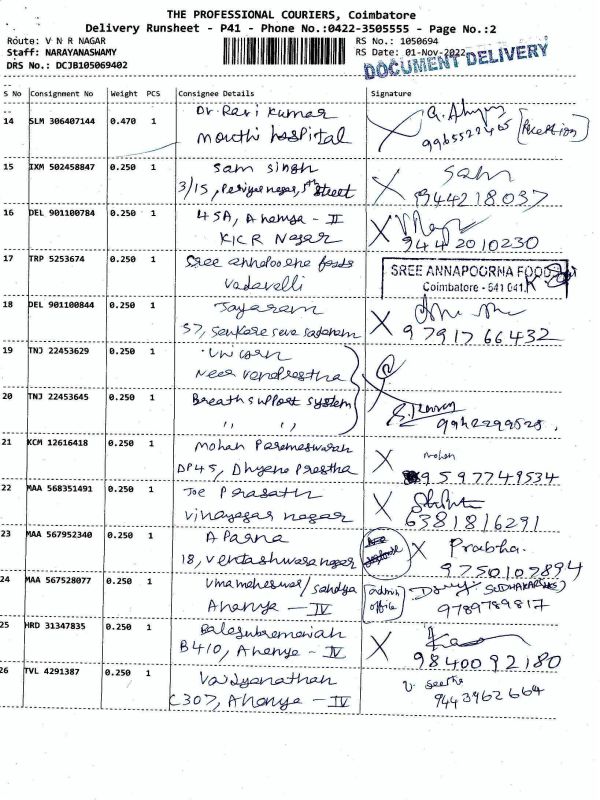 THE PROFESSIONAL COURIERS, Coimbatore
Delivery Runsheet - P41 - Phone No.:0422-3505555 - Page No.:2
Route: V N R NAGAR
RS No.: 1050694
Staff: NARAYANASWAMY
RS Date: 01-Nov-2022
DRS No.: DCJB105069402
DOCUMENT DELIVERY
S No Consignment No Weight PCS Consignee Details Signature
14 SLM 306407144 0.470 1 Dr. Ravi Kumar
Mouthi hospital
9965522465
15 IXM 502458847 0.250 1 Sam Singh Sam
3/15, Periya nagar, 5th Street 8344218037
16 DEL 901100784 0.250 1 45A, Ananya - II
KICR Nagar 9442010230
17 TRP 5253674 0.250 1 Sree annapoorna foods SREE ANNAPOORNA FOOD
Vadavalli Coimbatore - 641 041.
18 DEL 901100844 0.250 1 Jayaram
37, Sankara seva sadanam 9791766432
19 TNJ 22453629 0.250 1 Unicorn
Near
20 TNJ 22453645 0.250 1 Breath support system
" " 9942299528.
21 KCM 12616418 0.250 1 Mohan Parameswaran Mohan
DP45, Dhyana Prastha 9597749534
22 MAA 568351491 0.250 1 Joe Prasath
Vinayagar nagar 6381816291
23 MAA 567952340 0.250 1 Aparna X Prabha.
18, Venkateshwara nagar 9750107894
24 MAA 567528077 0.250 1 Umamaheswar/sandya (admin office)
Ananya - IV 9789789817
25 HRD 31347835 0.250 1 Balasubramaniah
B410, Ananya - IV 9840092180
26 TVL 4291387 0.250 1 Vaidyanathan
C307, Ananya - IV 9443962664